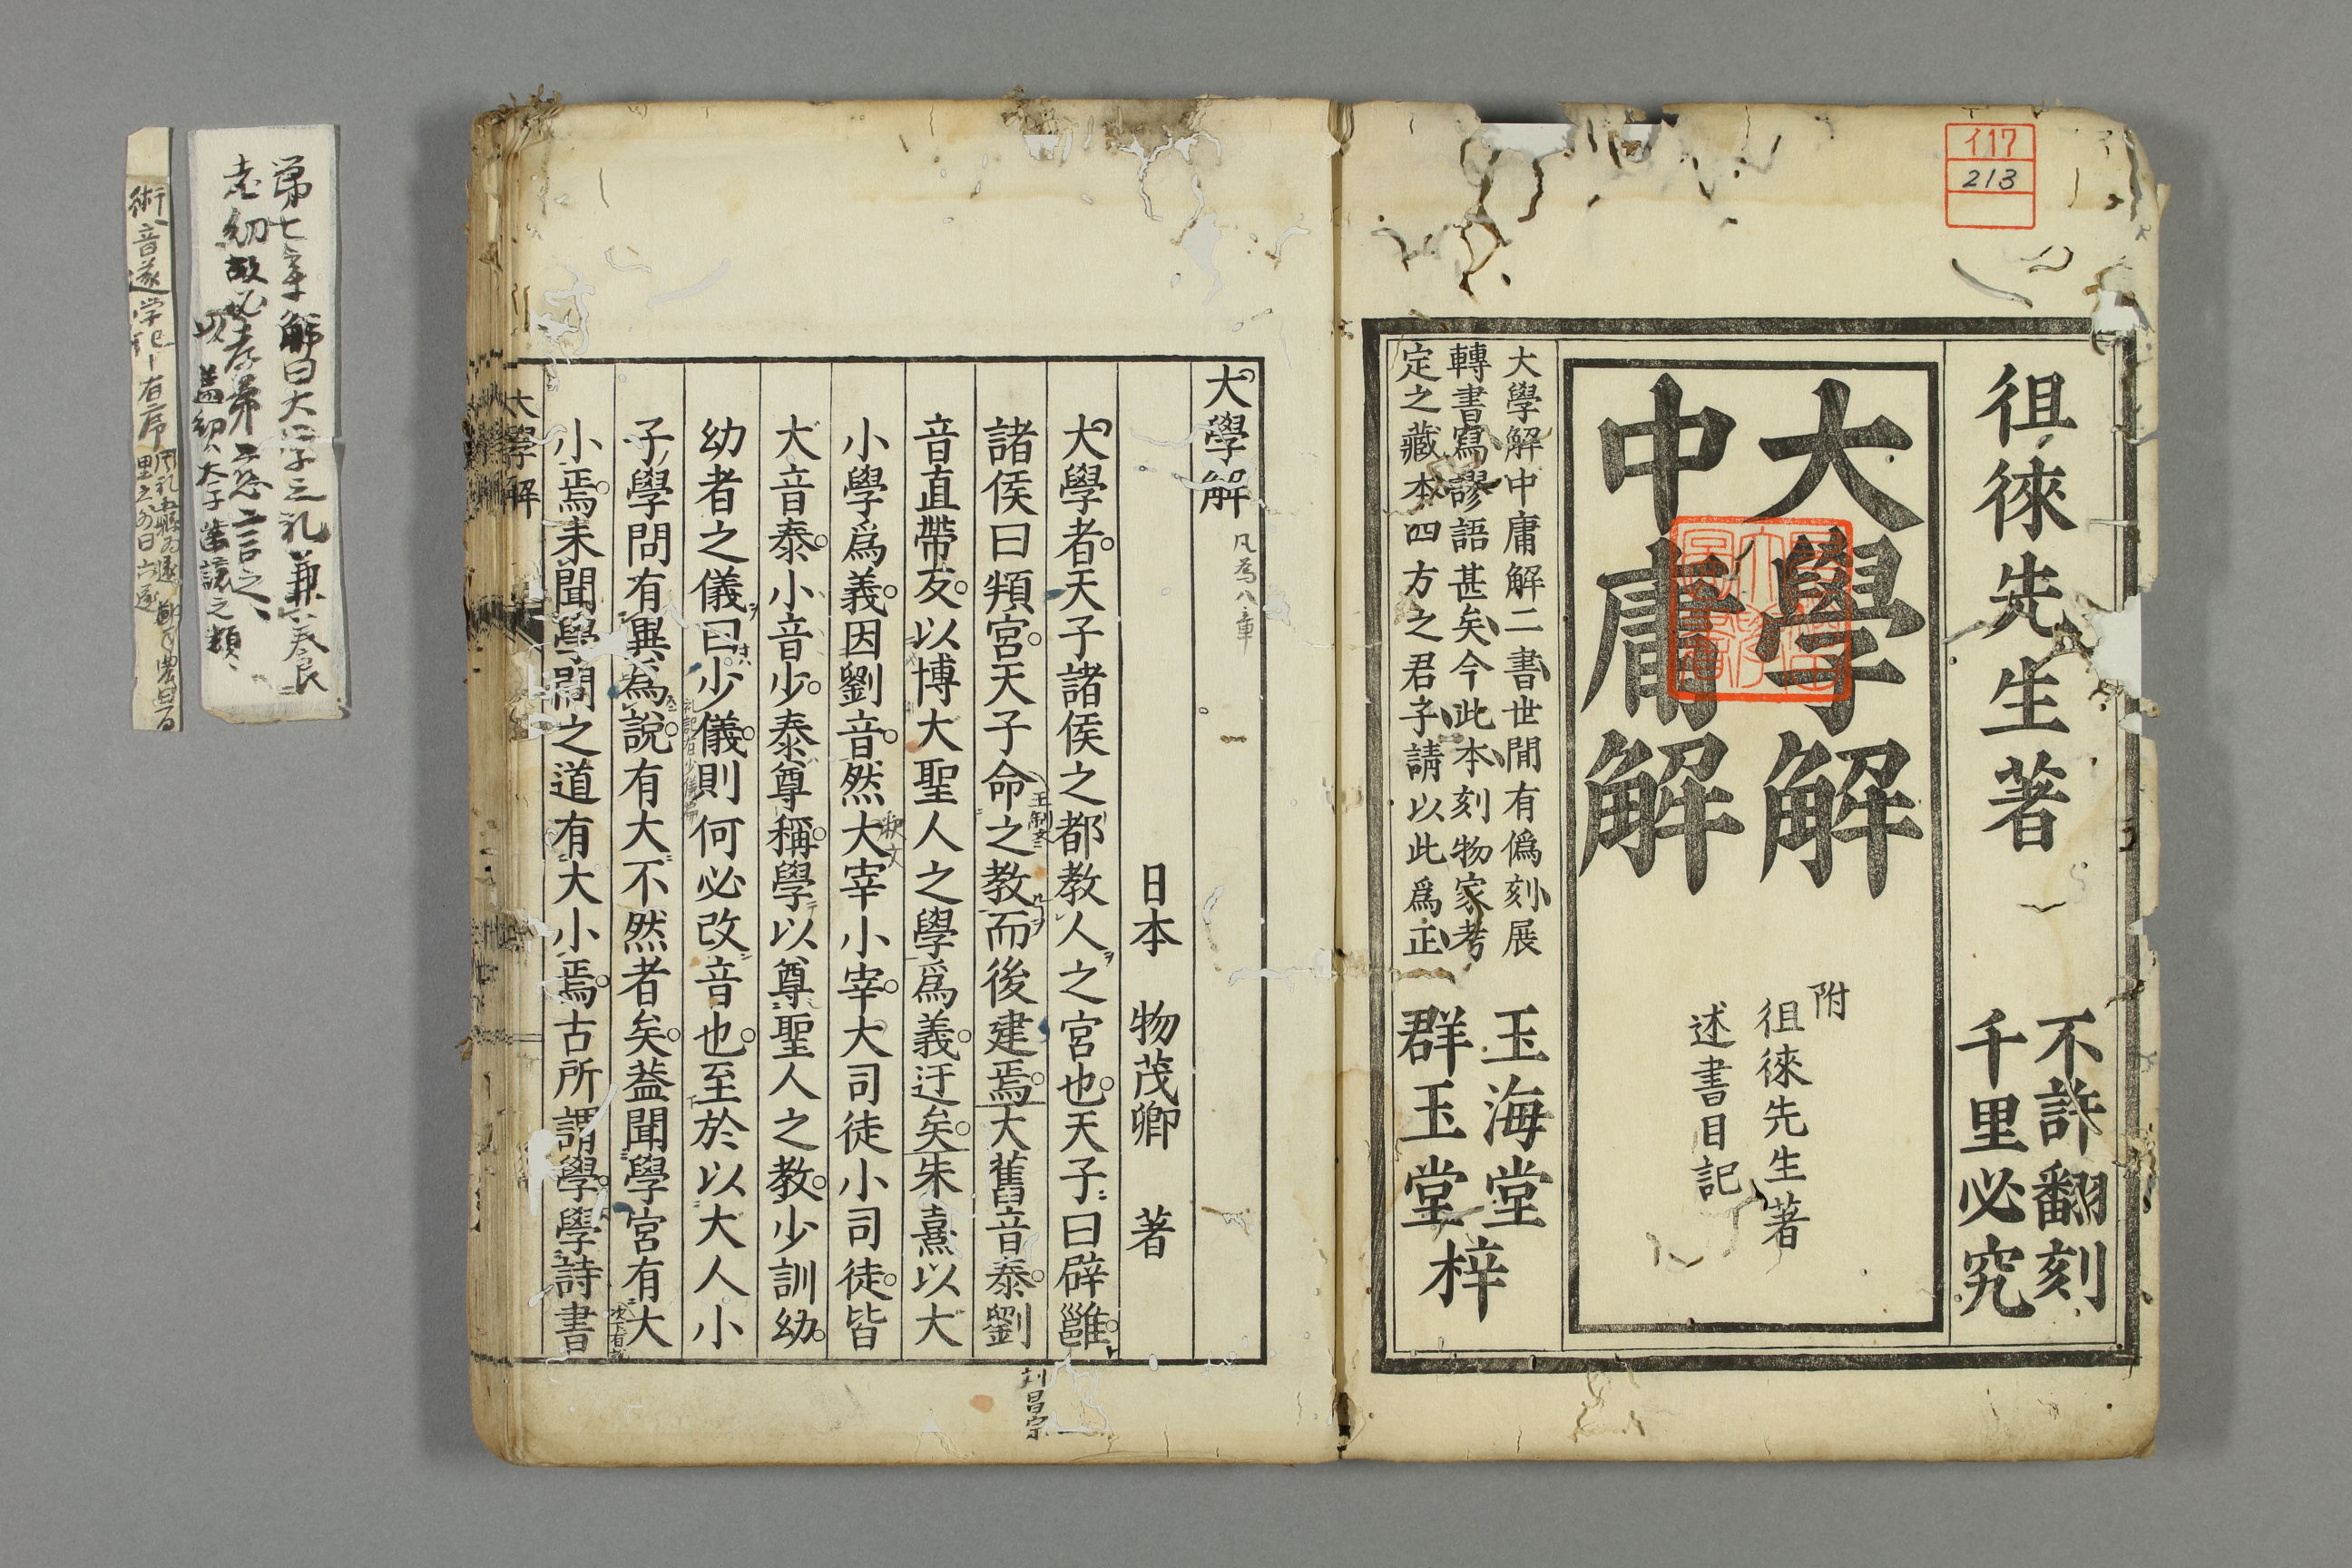 イ17
213
徂徠先生著
不許翻刻
千里必究
大學解
中庸解
附
徂徠先生著
述書目記
大學解中庸解二書世間有僞刻展
轉書寫謬語甚矣今此本刻物家考
定之藏本四方之君子請以此爲正
玉海堂
群玉堂
梓
大學解
凡為八章
日本 物茂卿 著
大學者天子諸侯之都教人之宮也天子曰辟雝
諸侯曰頖宮天子命之教而後建焉大舊音泰劉
王制文
刘昌宗
音直帶友以博大聖人之學爲義迂矣朱熹以大
小學爲義因劉音然大宰小宰大司徒小司徒皆
大音泰小音少泰尊稱學以尊聖人之教少訓幼
幼者之儀曰少儀則何必改音也至於以大人小
礼記有少儀篇
子學問有異爲說有大不然者矣葢聞學宮有大
小焉未聞學問之道有大小焉古所謂學學詩書
大學解
第七章解曰大学之礼兼養
老幼故必孝弟慈言之
術音遂学記有序